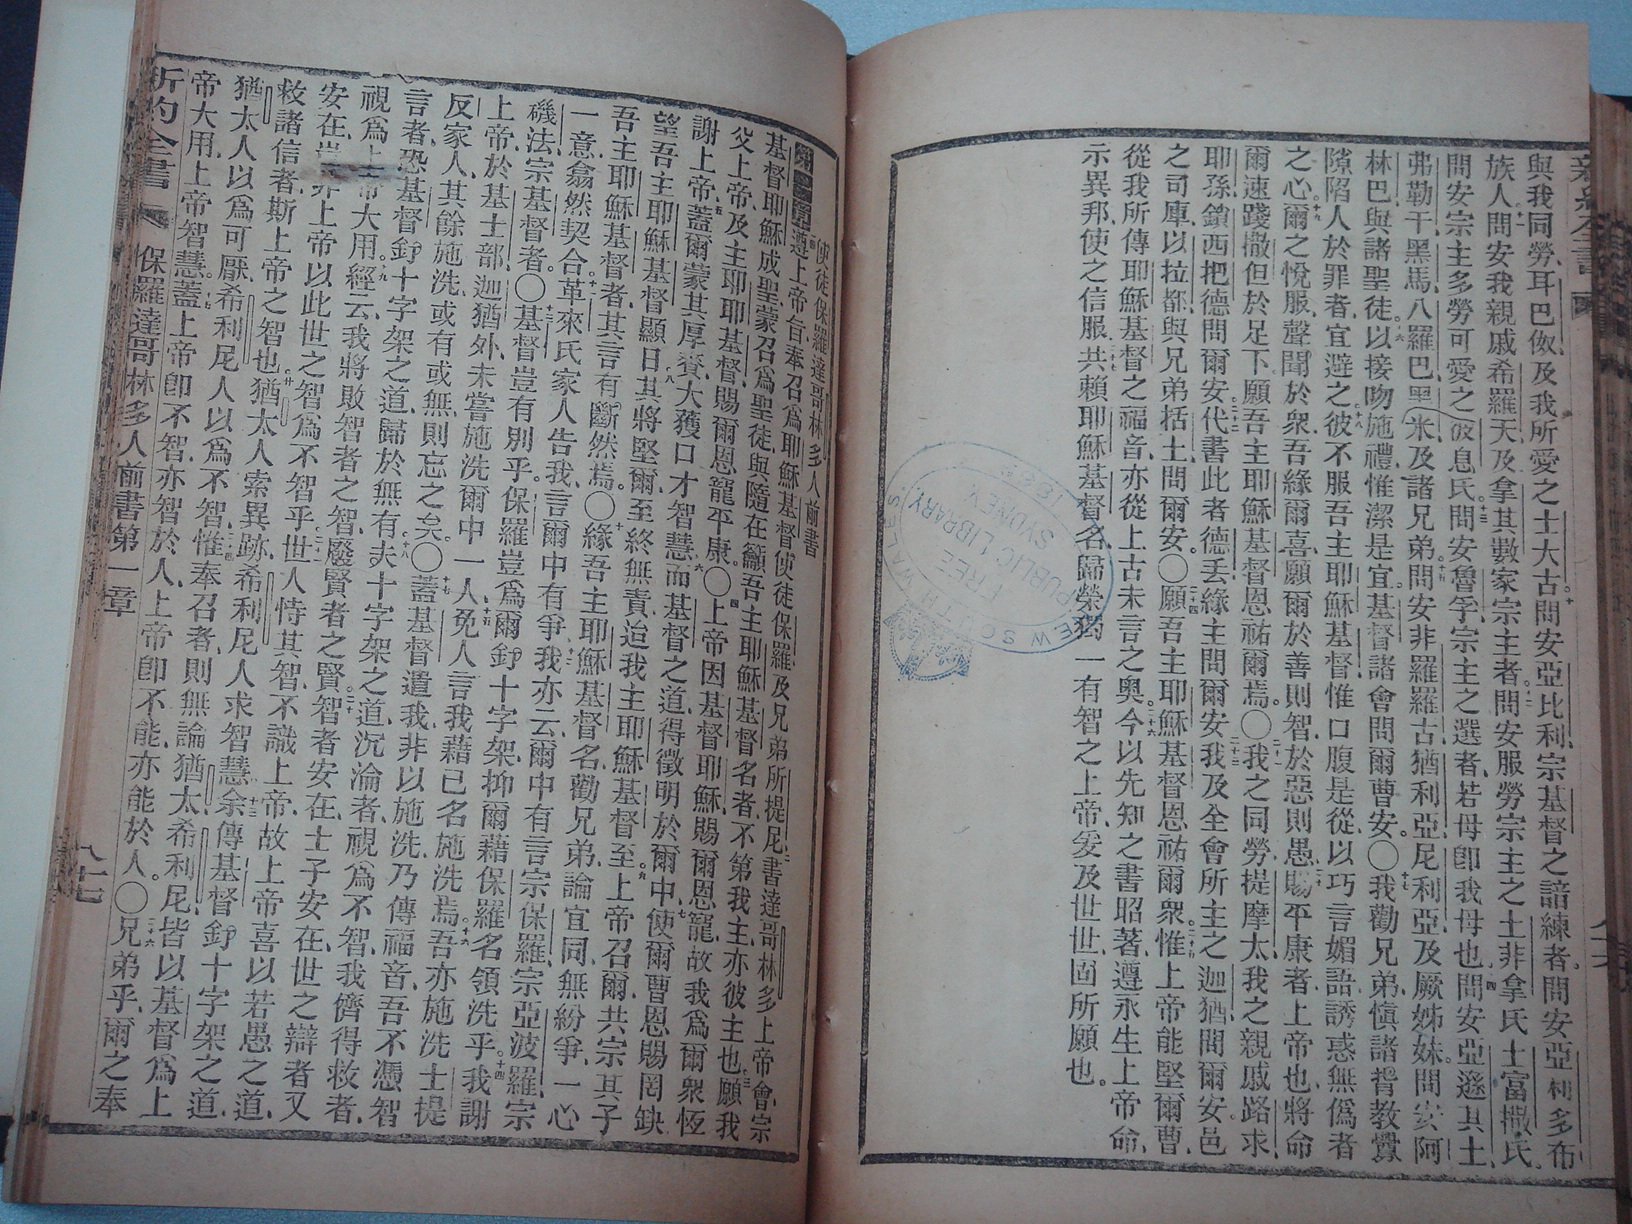 與我同勞耳巴伮及我所愛之士大古問安亞比利宗基督之諳練者問安亞利多布
族人問安我親戚希羅天及拿其數家宗主者問安服勞宗主之土非拿氏士富撒氏
問安宗主多勞可愛之彼息氏問安魯孚宗主之選者若母卽我母也問安亞遜其土
弗勒干黑馬八羅巴黑米及諸兄弟問安非羅羅古猶利亞尼利亞及厥姊妹問安阿
林巴與諸聖徒以接吻施禮惟潔是宜基督諸會問爾曹安〇我勸兄弟愼諸背教釁
隙陷人於罪者宜避之彼不服吾主耶穌基督惟口腹是從以巧言媚語誘惑無僞者
之心爾之悅服聲聞於衆吾緣爾喜願爾於善則智於惡則愚賜平康者上帝也將命
爾速踐撒但於足下願吾主耶穌基督恩祐爾焉〇我之同勞提摩太我之親戚路求
耶孫鎖西把德問爾安代書此者德丢緣主問爾安我及全會所主之迦猶問爾安邑
之司庫以拉都與兄弟括土問爾安〇願吾主耶穌基督恩祐爾衆惟上帝能堅爾曹
從我所傳耶穌基督之福音亦從上古未言之奧今以先知之書昭著遵永生上帝命
示異邦使之信服共賴耶穌基督名歸榮獨一有智之上帝爰及世世固所願也
使徒保羅達哥林多人前書
遵上帝旨奉召爲耶穌基督使徒保羅及兄弟所提尼書達哥林多上帝會宗
基督耶穌成聖蒙召爲聖徒與隨在籲吾主耶穌基督名者不第我主亦彼主也願我
父上帝及主耶耶基督賜爾恩寵平康〇上帝因基督耶穌賜爾恩寵故我爲爾衆恆
謝上帝蓋爾蒙其厚賚大獲口才智慧而基督之道得徵明於爾中使爾曹恩賜罔缺
望吾主耶穌基督顯日其將堅爾至終無責迨我主耶穌基督至上帝召爾共宗其子
吾主耶穌基督者其言有斷然焉〇緣吾主耶穌基督名勸兄弟論宜同無紛爭一心
一意翕然契合革來氏家人告我言爾中有爭我亦云爾中有言宗保羅宗亞波羅宗
磯法宗基督者〇基督豈有別乎保羅豈爲爾釘十字架抑爾藉保羅名領洗乎我謝
上帝於基士部迦猶外未嘗施洗爾中一人免人言我藉已名施洗焉吾亦施洗士提
反家人其餘施洗或有或無則忘之矣〇蓋基督遣我非以施洗乃傳福音吾不憑智
言者恐基督釘十字架之道歸於無有夫十字架之道沉淪者視爲不智我儕得救者
視爲上帝大用經云我將敗智者之智廢賢者之賢智者安在士子安在世之辯者又
安在豈非上帝以此世之智爲不智乎世人恃其智不識上帝故上帝喜以若愚之道
救諸信者斯上帝之智也猶太人索異跡希利尼人求智慧余傳基督釘十字架之道
猶太人以爲可厭希利尼人以爲不智惟奉召者則無論猶太希利尼皆以基督爲上
帝大用上帝智慧蓋上帝卽不智亦智於人上帝卽不能亦能於人〇兄弟乎爾之奉
新約全書
保羅達哥林多人前書第一章
八十七
NEW SOUTH WALES
FREE
PUBLIC LIBRARY
SYDNEY